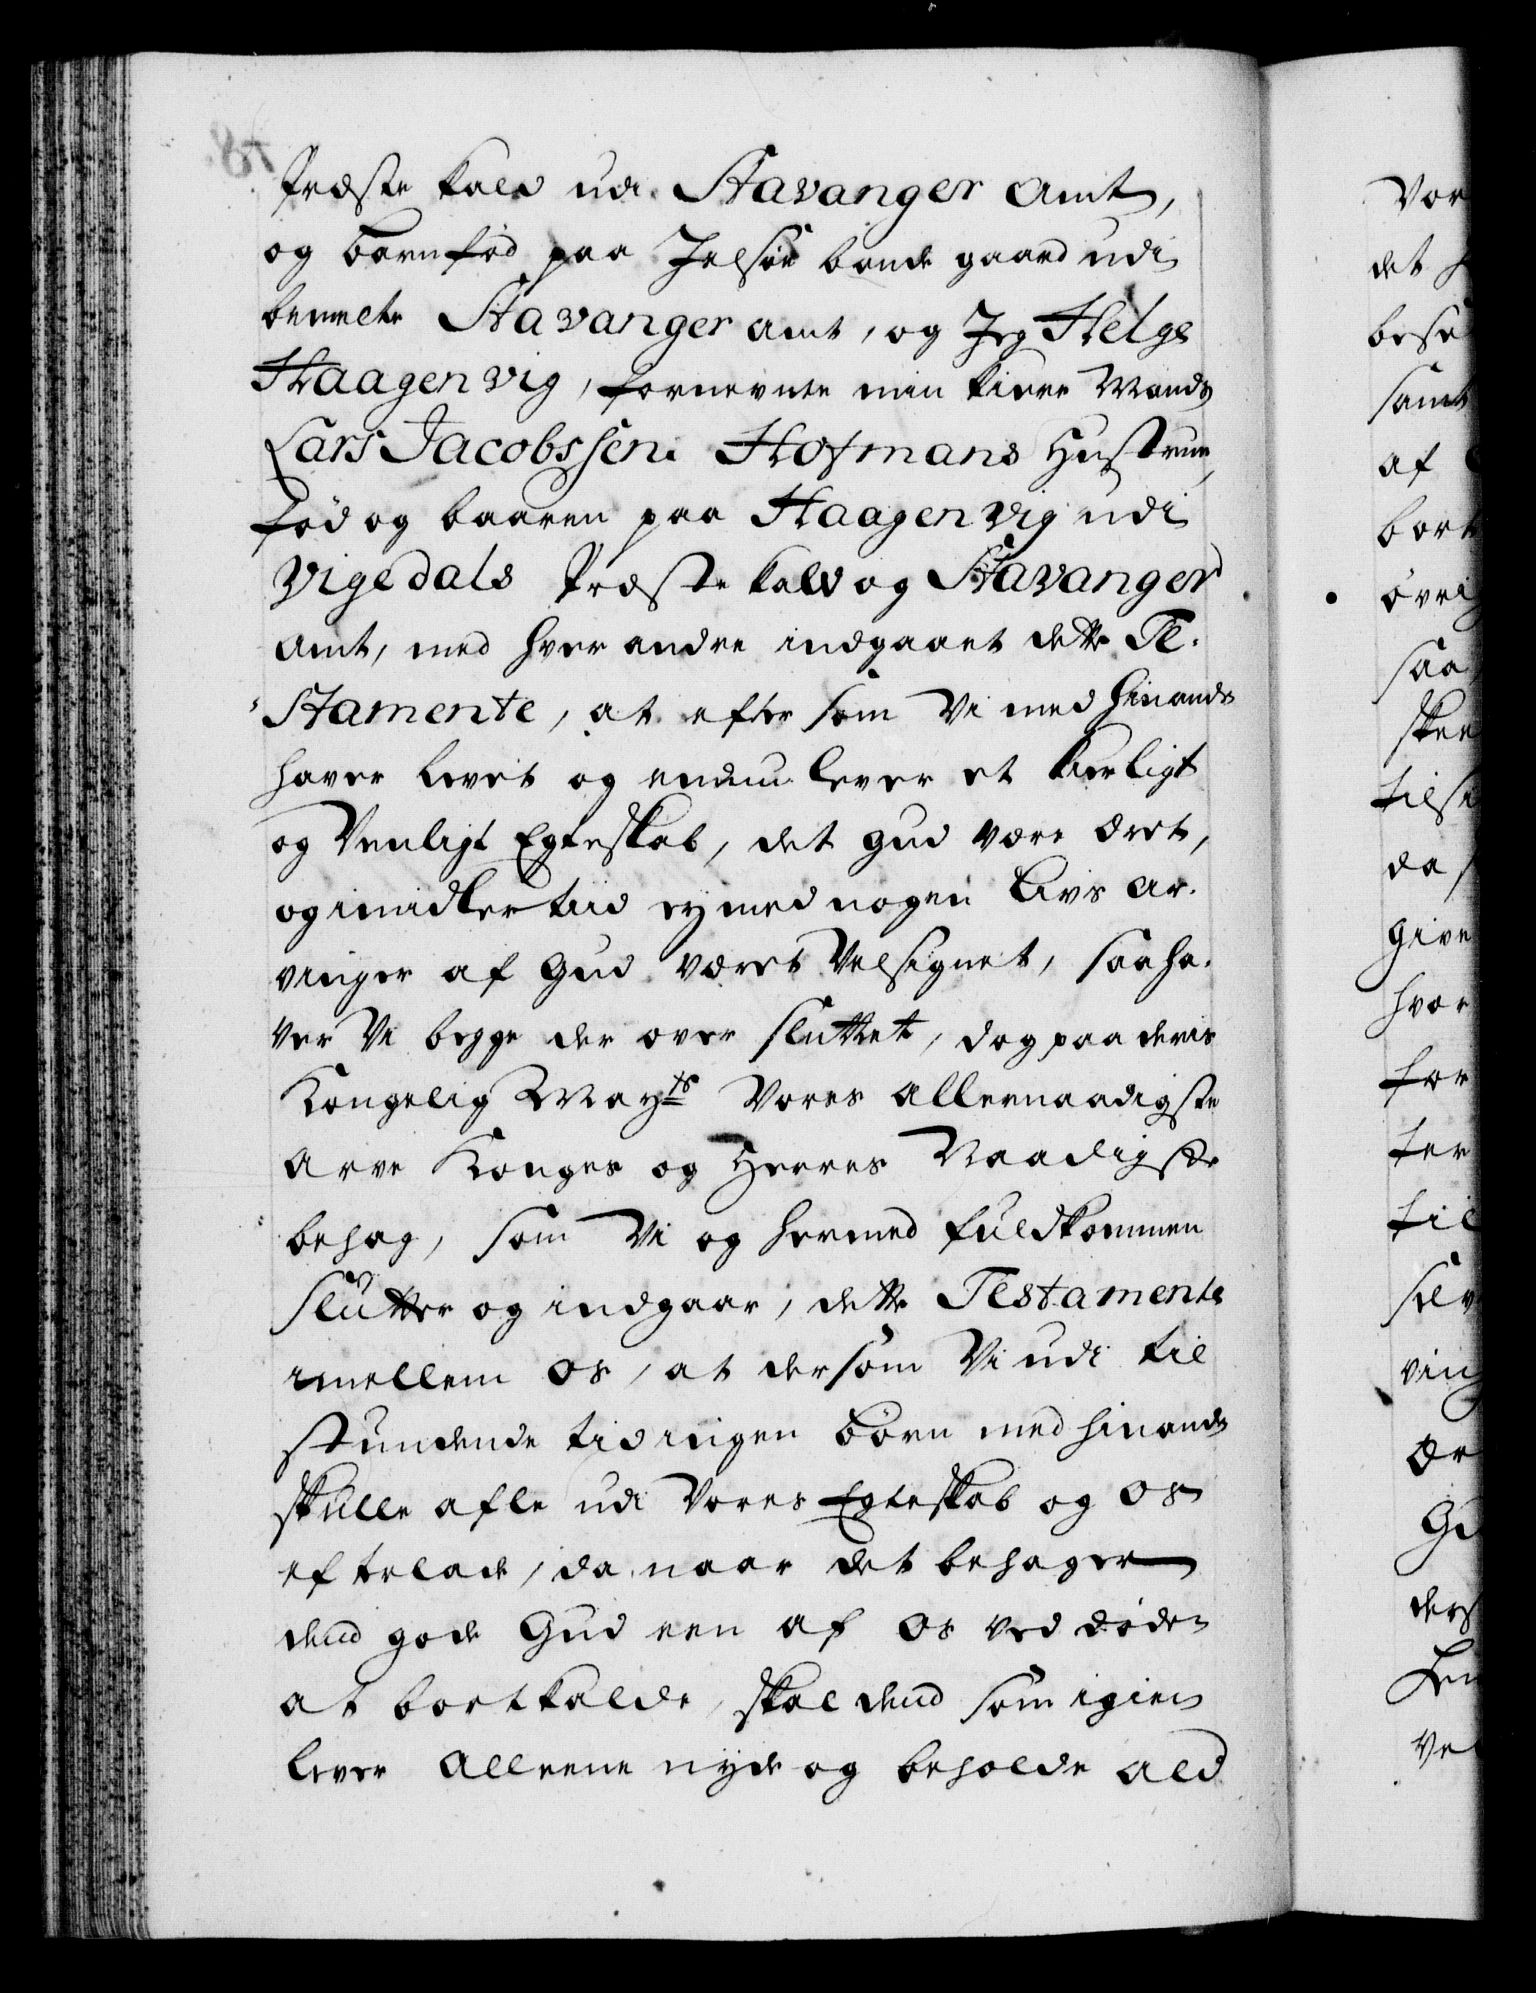 Præste kald udi Stavanger Amt,
og barnfød paa Jelsøe bonde gaard udi
bemelte Stavanger Amt, og Jeg Helge
Haagenvig, fornevnte min kiere Mands
Lars Jacobssen Hofmans Hustrue,
fød og baaren paa Haagenvig udi
Vigedals Præste kald og Stavanger
Amt, med hver andre indgaaet dette Te-
stamente, at efter som Vi med hinanden
haver levet og endnu lever et kierligt
og Venligt Egteskab, det Gud være æret,
og imidlertiid ey med nogen Livs Ar-
vinger af Gud været Velsignet, saa ha-
ver Vi begge der over sluttet, dog paa deris
Kongelig Mayts Vores allernaadigste
Arve Konges og Herres Naadigste
behag, som Vi og hermed fuldkommen
slutter og indgaar, dette Testamente
imellem os, at dersom Vi udi til
stundende tid ingen Børn med hinanden
skulle afle udi Vores Egteskab og os
efterlade, da naar det behager
dend gode Gud een af os ved døden
at bortkalde, skal dend som igien
lever alleene nyde og beholde ald
Vor
det
samt
af
bort
saa
skee
da
give
hvor
for
ter
til